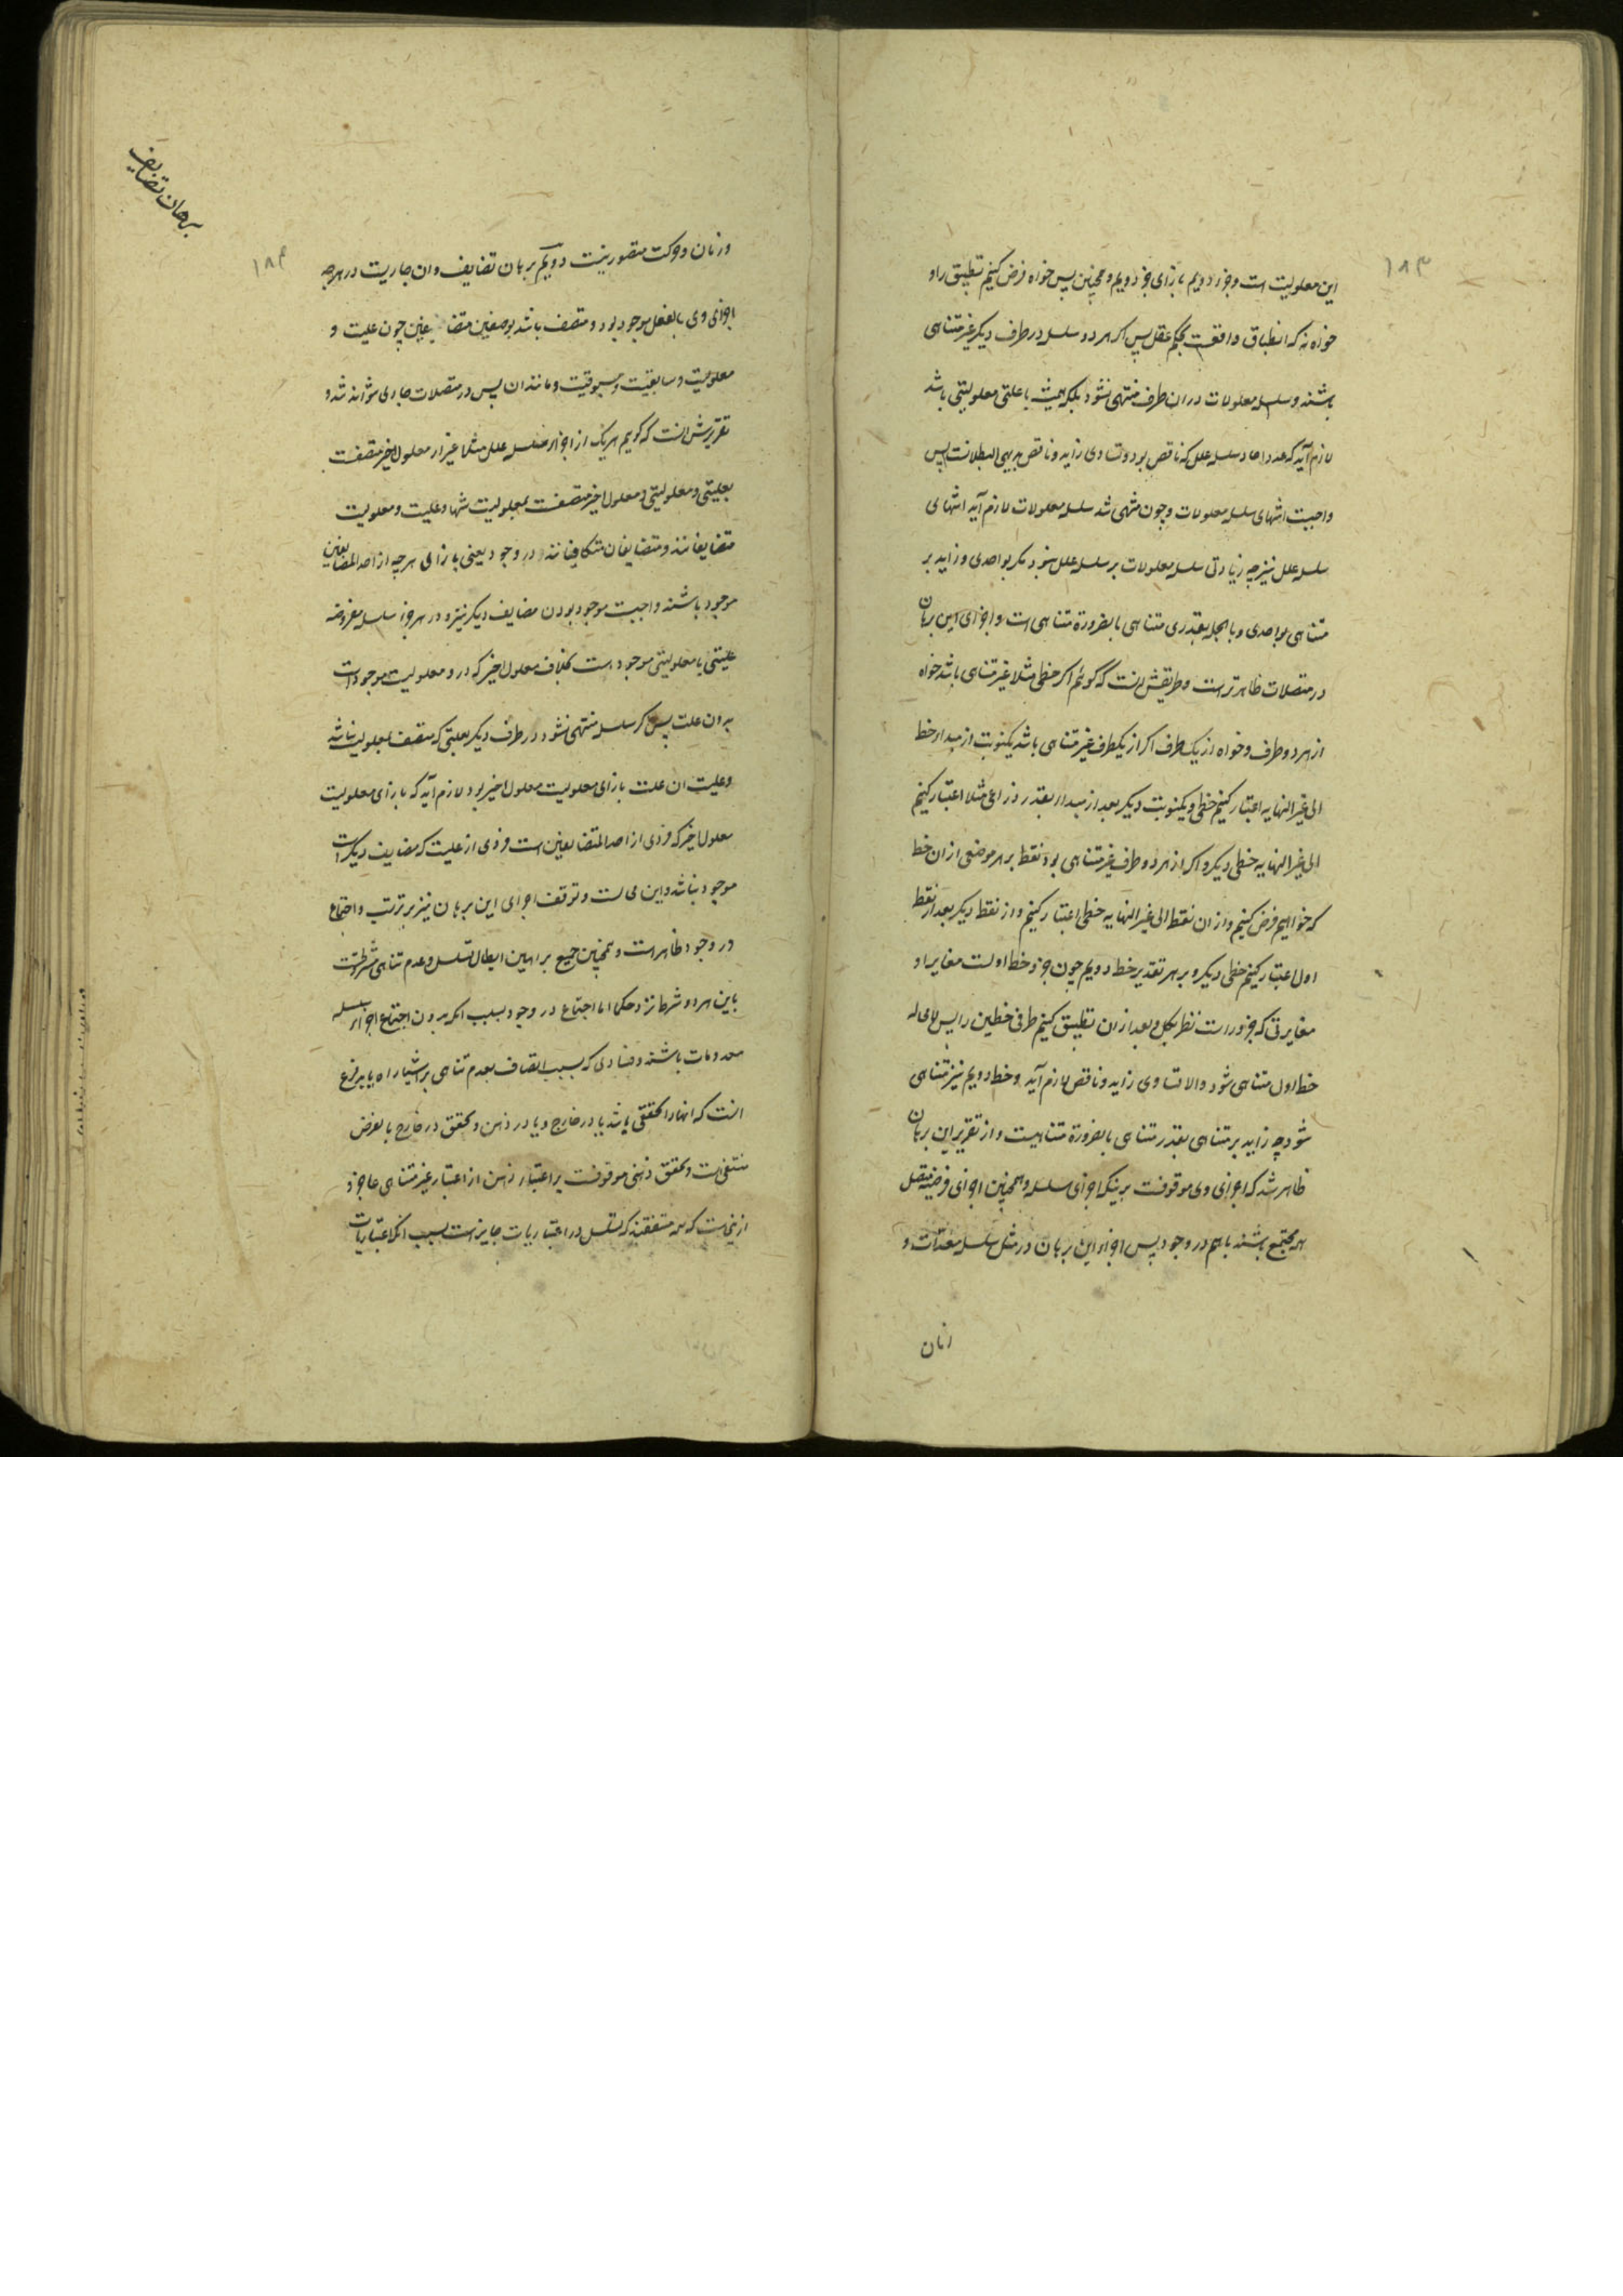 ۱۸۳
این معلولیت است و جزء دویم بازای جزء دویم و همچنین پس خواه فرض کنیم تطبیق را و
خواه نه که انطباق واقعست بحکم عقل پس اگر هر دو سلسله در طرف دیگر غیر متناهی
باشند و سلسله معلولات در ان طرف منتهی نشود بلکه همیشه با علتی معلولیتی باشد
لازم آید که عدد احاد سلسله علل که ناقص بود و تساوی زاید و ناقص بدیهی البطلانست پس
واجبست انتهای سلسله معلولات و چون منتهی شد سلسله معلولات لازم آید انتهای
سلسله علل نیز چه زیادتی سلسله معلولات بر سلسله علل نبود مگر بواحدی و زاید بر
متناهی بواحدی و بالجمله بقدری متناهی بالضروره متناهی است و اجرای این برهان
در متصلات ظاهرتر است و طریقش انست که گوئیم اگر خطی مثلا غیر متناهی باشد خواه
از هر دو طرف و خواه از یک طرف اگر از یکطرف غیر متناهی باشد یکنوبت از مبداء خط
الی غیر النهایه اعتبار کنیم خطی و یکنوبت دیگر بعد از مبداء بقدر ذراعی مثلا اعتبار کنیم
الی غیر النهایه خطی دیگر و اگر از هر دو طرف غیر متناهی بود نقطه بر هر موضعی از ان خط
که خواهیم فرض کنیم و از ان نقطه الی غیر النهایه خطی اعتبار کنیم و از نقطه دیگر بعد از نقطه
اول اعتبار کنیم خطی دیگر و بر هر تقدیر خط دویم چون جزء خط اولست مغایر او
مغایرتی که جزء راست نظر بکل و بعد از ان تطبیق کنیم طرفی خطین را پس لامحاله
خط اول متناهی شود والا تساوی زاید و ناقص لازم آید و خط دویم نیز متناهی
شود چه زاید بر متناهی بقدر متناهی بالضروره متناهیست و از تقریر این برهان
ظاهر شد که اجرای وی موقوفست برینکه اجزای سلسله و همچنین اجزای فرضیه متصل
همه مجتمع باشند باهم در وجود پس اجراء این برهان در مثل سلسله معدّات و
زمان
برهان تضایف
۱۸۴
و زمان و حرکت متصور نیست دویم برهان تضایف و ان جاریست در هر چه
اجزای وی بالفعل موجود بود و متصف باشد بوصفین متضایفین چون علیت و
معلولیت و سابقیت و مسبوقیت و مانند ان پس در متصلات جاری نتواند شد و
تقریرش انست که گویم هر یک از اجزاء سلسله علل مثلا غیر از معلول اخیر متصفست
بعلیتی و معلولیتی و معلول اخیر متصفست بمعلولیت تنها و علیت و معلولیت
متضایفانند و متضایفان متکافیانند در وجود یعنی بازای هر چه از احد المتضایفین
موجود باشند واجبست موجود بودن مضایف دیگر نیز و در هر جزء سلسله مفروضه
علیتی با معلولیتی موجود است بخلاف معلول اخیر که در و معلولیت موجود است
بدون علت پس اگر سلسله منتهی نشود در طرف دیگر بعلتی که متصف بمعلولیت نباشد
و علیت ان علت بازای معلولیت معلول اخیر بود لازم آید که بازای معلولیت
معلول اخیر که فردی از احد المتضایفین است فردی از علیت که مضایف دیگر است
موجود نباشد و این محالست و توقف اجرای این برهان نیز بر ترتب و اجتماع
در وجود ظاهر است و همچنین جمیع براهین ابطال تسلسل و عدم تناهی مشروطست
باین هر دو شرط نزد حکما اما اجتماع در وجود بسبب انکه بدون اجتماع اجزاء سلسله
معدومات باشند و فسادی که بسبب اتصاف بعدم تناهی بر اشیاء راه یابد فرع
انست که انها را تحققی باشد یا در خارج و یا در ذهن و تحقق در خارج بالفرض
منتفی است و تحقق ذهنی موقوفست بر اعتبار ذهن از اعتبار غیر متناهی عاجز و
ازینجاست که همه متفقند که تسلسل در اعتباریات جایز است بسبب انکه اعتباریات